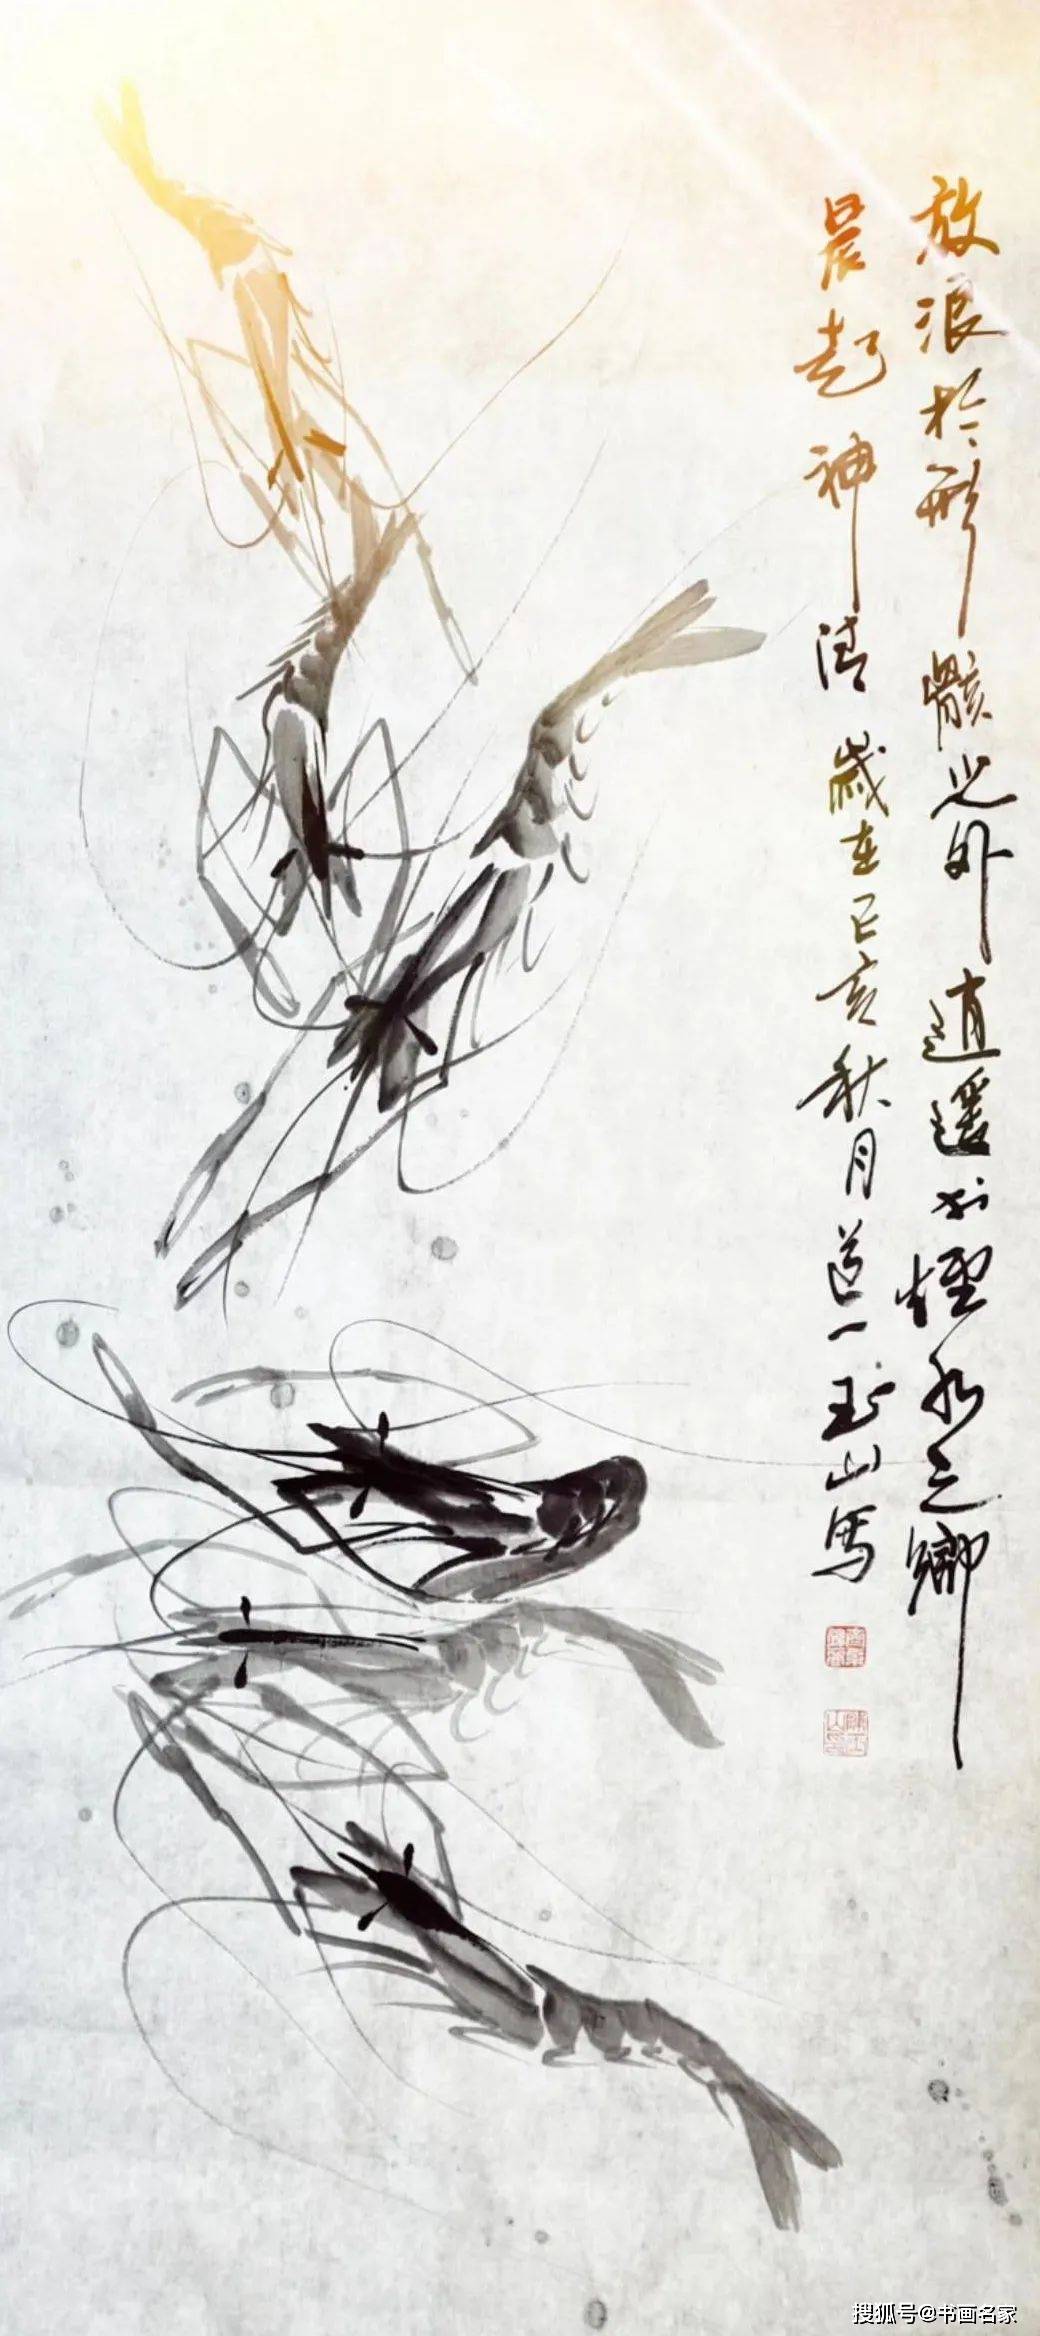 放浪於形骸之外逍遥於煙水之鄉
晨起神清歲在己亥秋月道一玉山写
搜狐号@书画名家